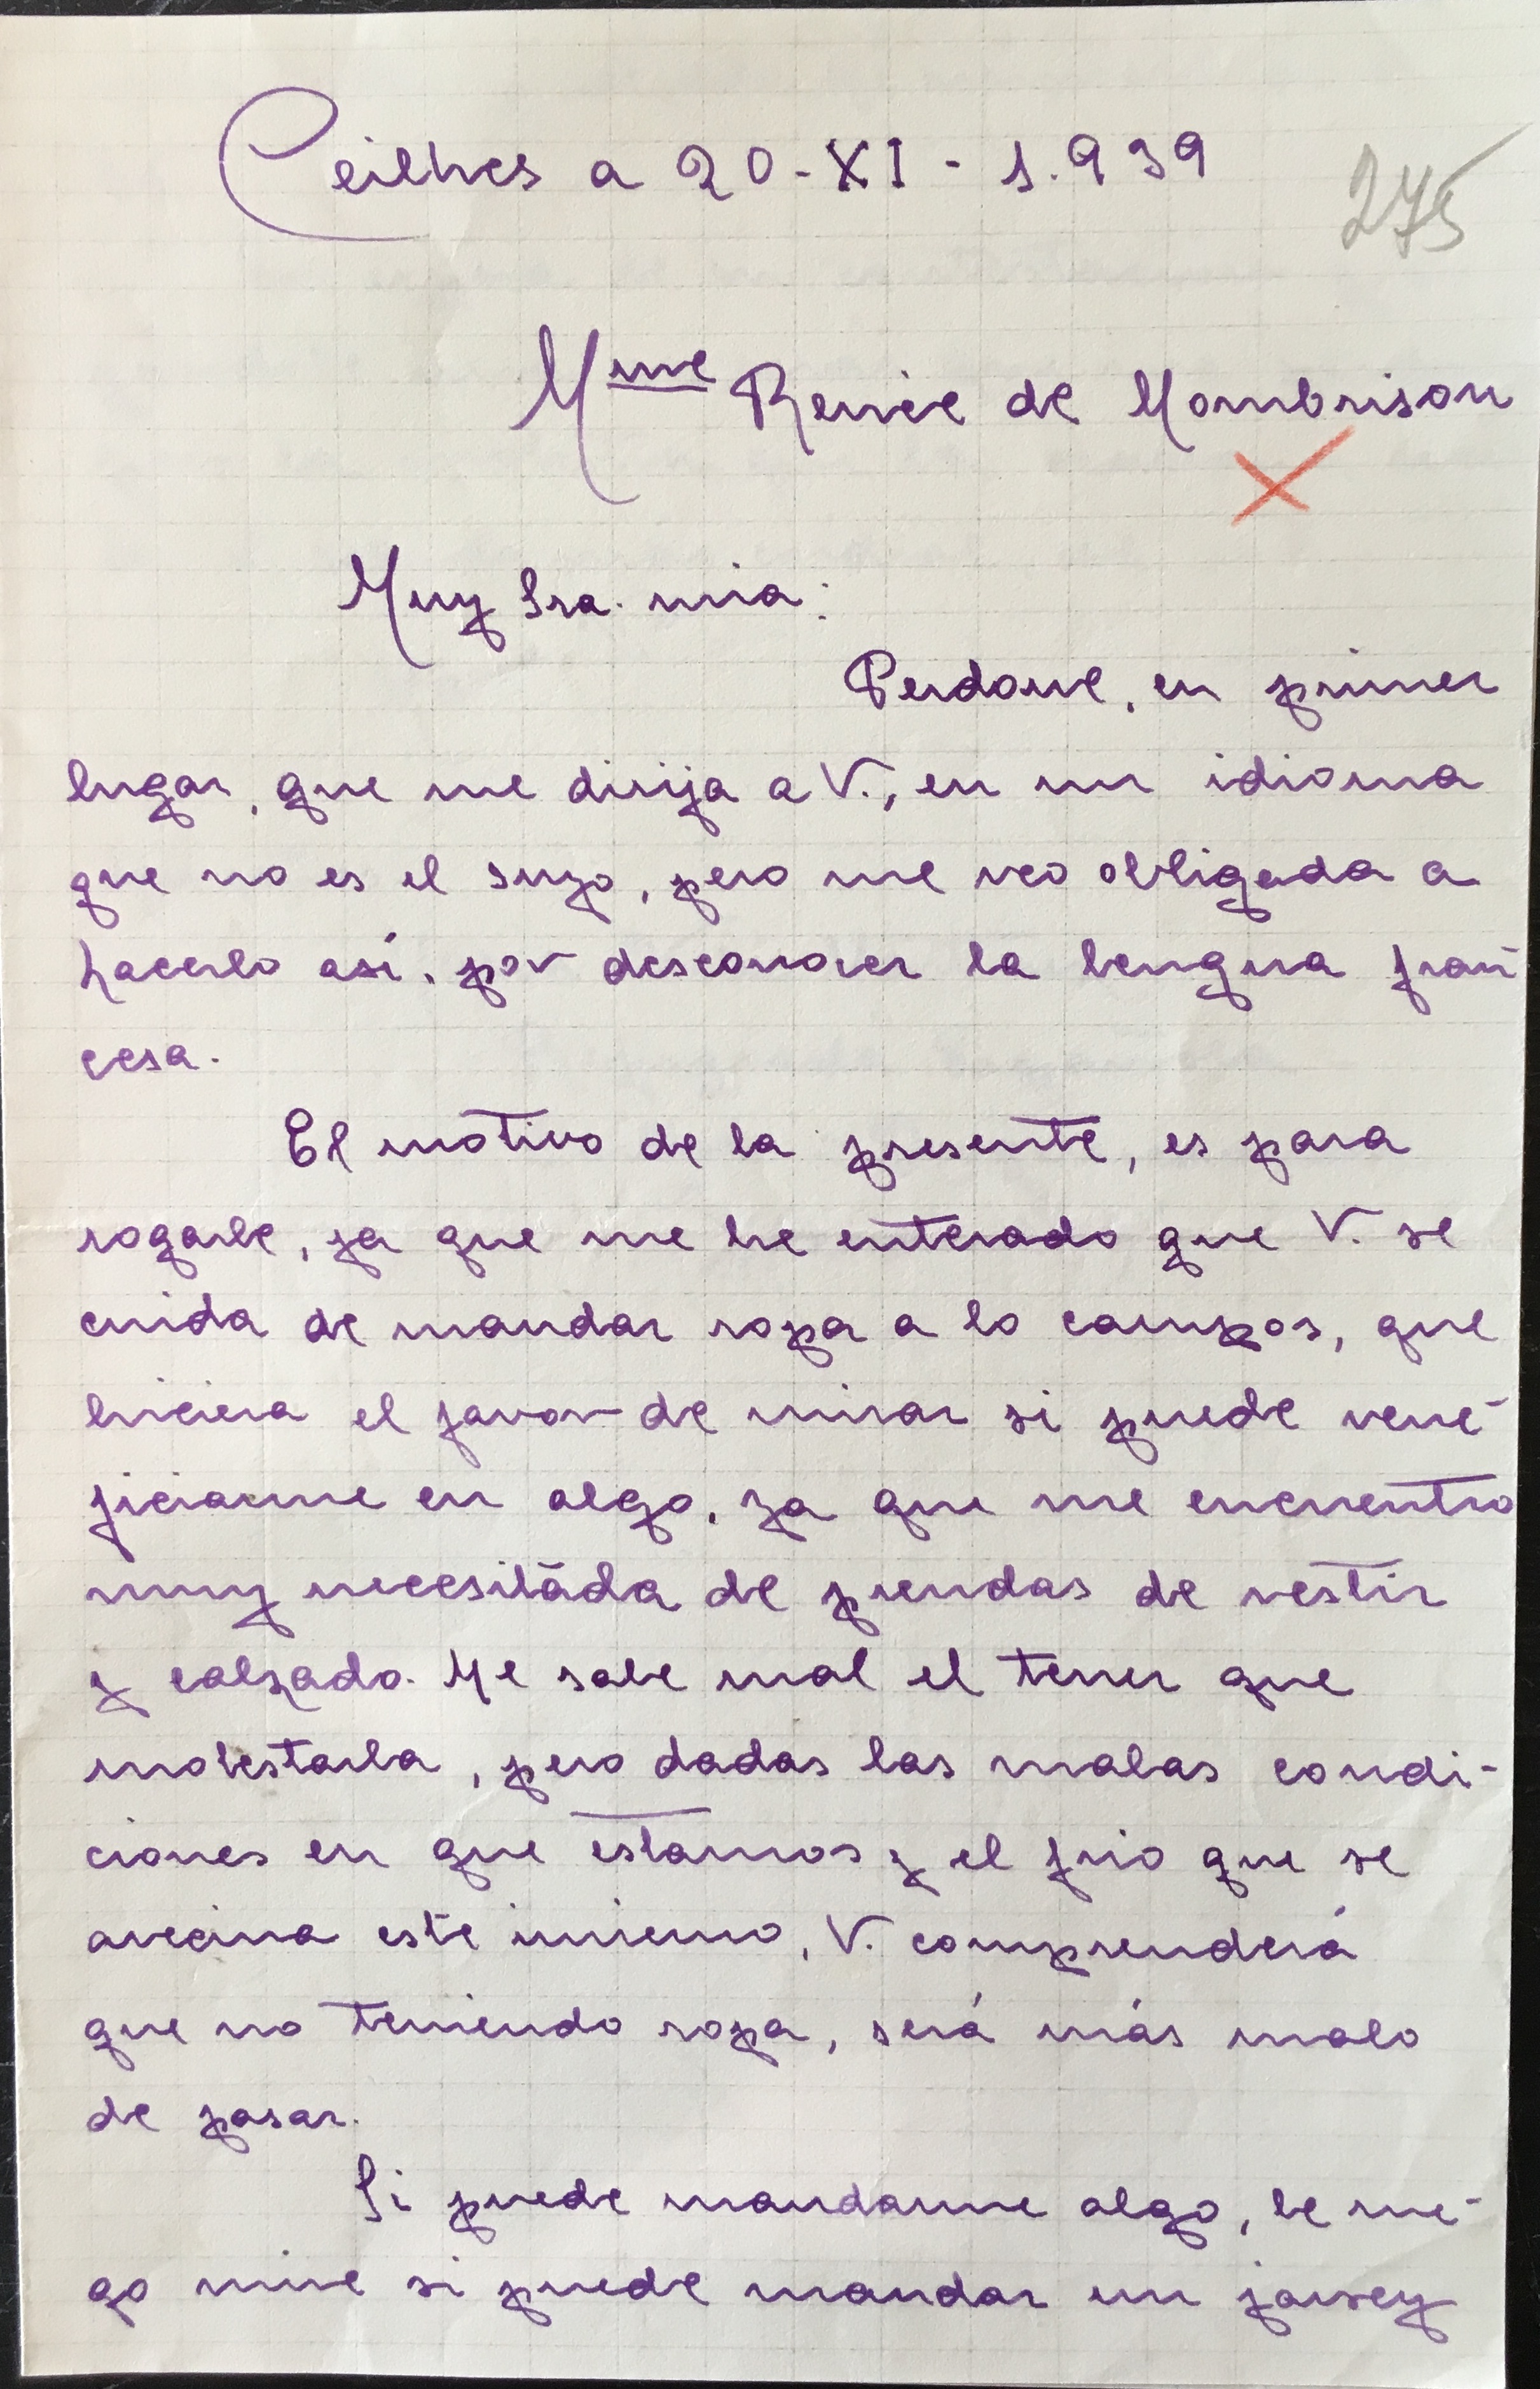 Ceilhes a 20-XI-1.939
275
Mme Renée de Mombrison
Muy Sra. mia:
Perdone, en primer
lugar, que me dirija a V., en un idioma
que no es el suyo, pero me veo obligada a
hacerlo así, por desconocer la lengua fran-
cesa.
El motivo de la presente, es para
rogarle, ya que me he enterado que V. se
cuida de mandar ropa a lo campos, que
hiciera el favor de mirar si puede vene-
ficiarme en algo, ya que me encuentro
muy necesitada de prendas de vestir
y calzado. Me sabe mal el tener que
molestarla, pero dadas las malas condi-
ciones en que estamos y el frio que se
avecina este invierno, V. comprenderá
que no teniendo ropa, será más malo
de pasar.
Si puede mandarme algo, le rue-
go mire si puede mandar un jarsey